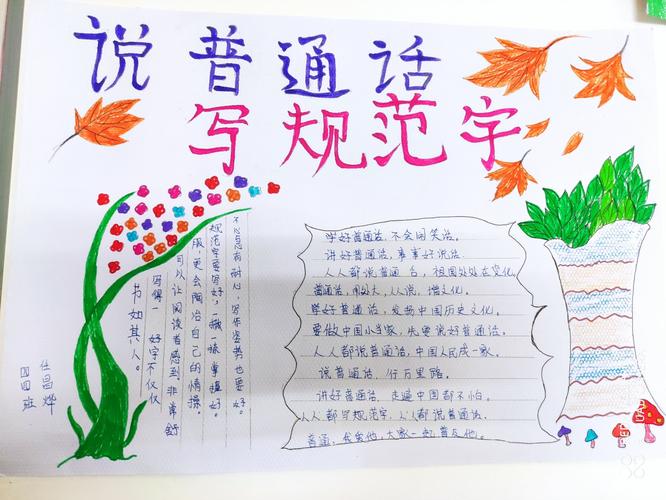 说普通话
写规范字
学好普通话,不会闹笑话。
讲好普通话,事事好说话
人人都说普通 ,祖国处处在变化。
普通话,用处大,人人说,增文化。
学好普通话,发扬中国历史文化。
要做中国小当家,先要说好普通话。
人人都说普通话,中国人民成一家。
说普通话,行万里路。
讲好普通话,走遍中国都不怕。
人人都写规范字,人人都说普通话。
普通,我爱他,大家一起普及他。
不心急有耐心,写字姿势也要好。
规范字要写好,一横一竖掌握好。
服,更会陶冶自己的情操。
可以让阅读者感到非常舒
写得一 好字不仅仅
书如其人。
任昌烨
四四班